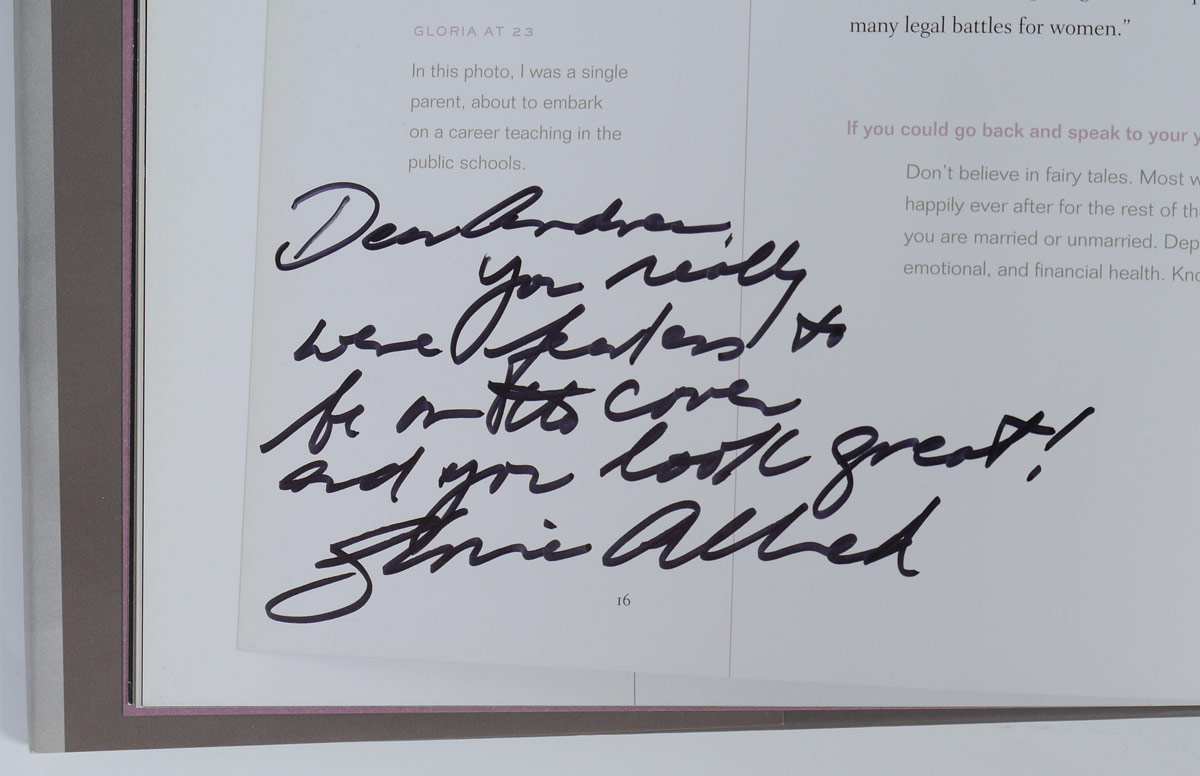 GLORIA AT 23
In this photo, I was a single
parent, about to embark
on a career teaching in the
public schools.
many legal battles for women.”
If you could go back and speak to your y
Don’t believe in fairy tales. Most w
happily ever after for the rest of th
you are married or unmarried. Dep
emotional, and financial health. Kno
Dear Andrea,
you really
were fearless to
be on cover
and you look great!
Gloria Allred
16